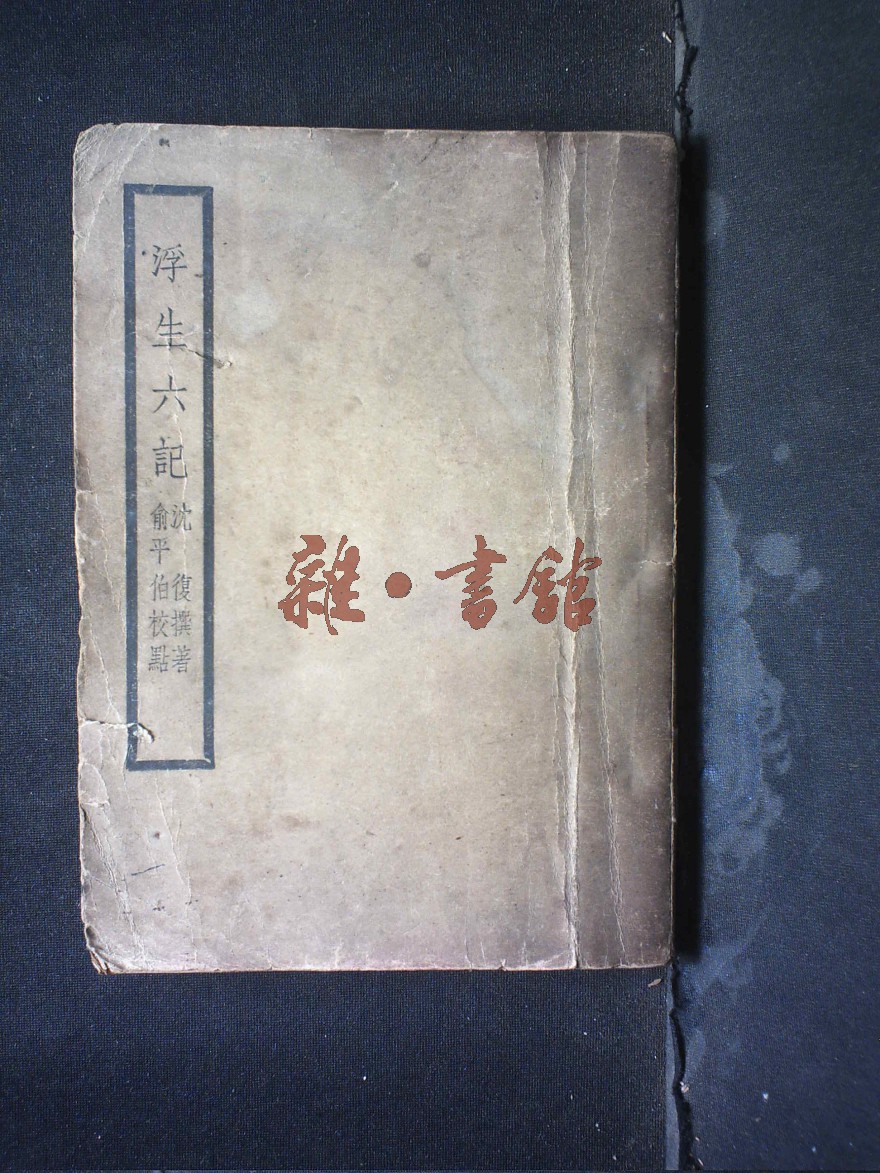 浮生六記
沈復撰著
俞平伯校點
雜•書館